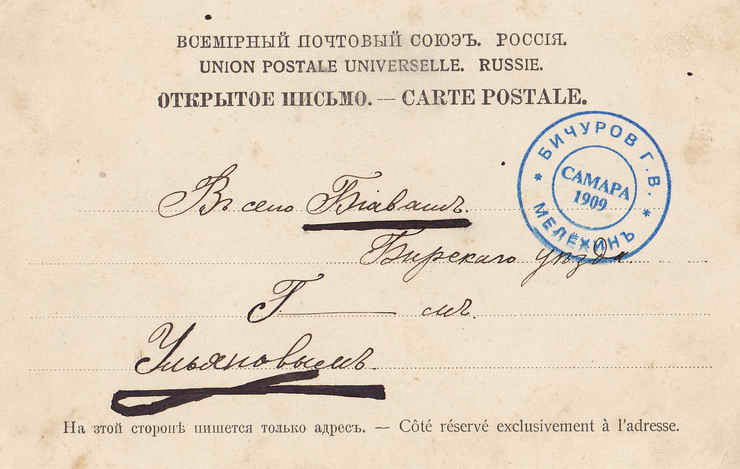 ВСЕМІРНЫЙ ПОЧТОВЫЙ СОЮЗЪ. РОССІЯ.
UNION POSTALE UNIVERSELLE. RUSSIE.
ОТКРЫТОЕ ПИСЬМО. — CARTE POSTALE.
БИЧУРОВ Г. В.
САМАРА
1909
МЕЛЁХИНЪ
Въ село Біавашъ
Бирскаго уѣзда
Г— мъ.
Ульяновымъ.
На этой сторонѣ пишется только адресъ. — Côté réservé exclusivement à l'adresse.